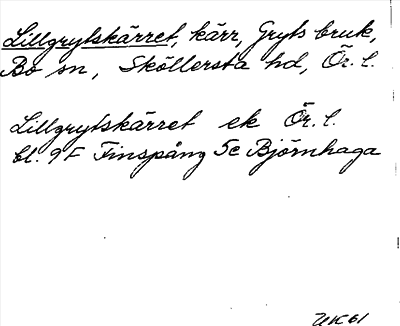 Lillgrytskärret, kärr, Gryts bruk,
Bo sn, Sköllersta hd, Ör. l.
Lillgrytskärret ek Ör. l.
bl. 9F Finspång 5c Björnhaga
UK61